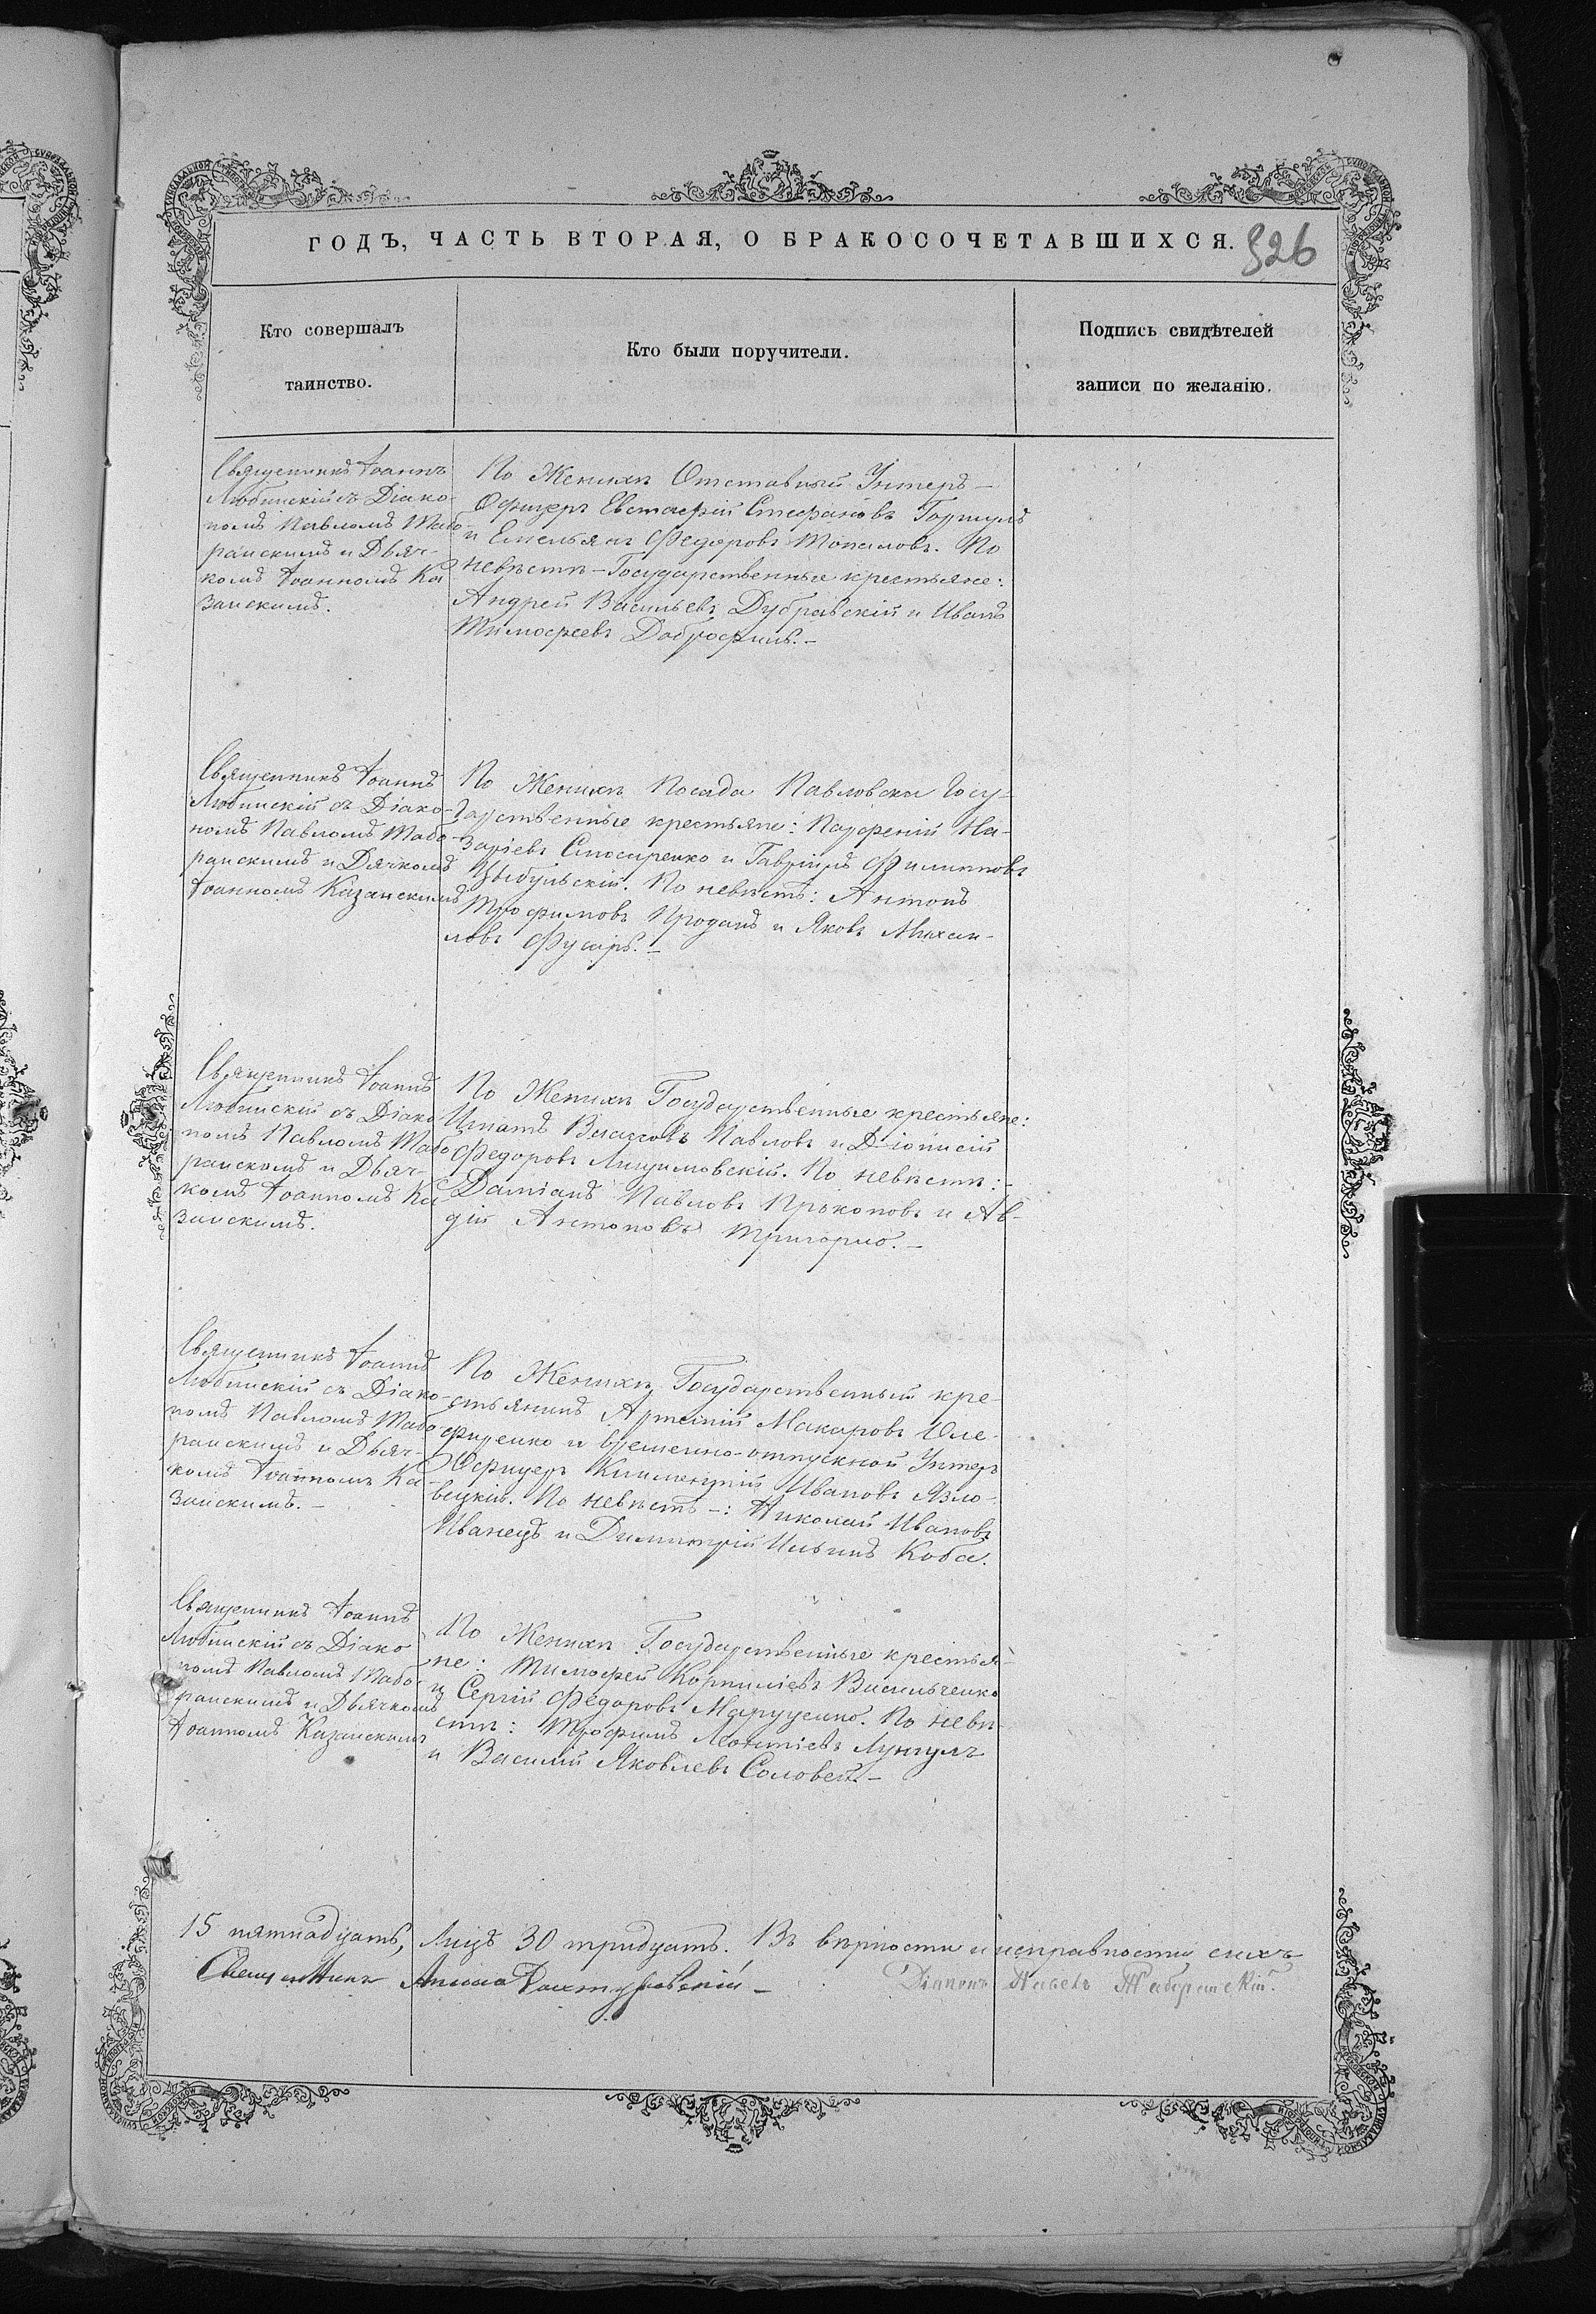 ГОДЪ, ЧАСТЬ ВТОРАЯ, О БРАКОСОЧЕТАВШИХСЯ.
326
Кто совершалъ
таинство.
Кто были поручители.
Подпись свидѣтелей
записи по желанію.
Священникъ Іоаннъ
Любинскій съ Діако-
номъ Павломъ Табо-
ранскимъ и Дьяч-
комъ Іоанномъ Ка
занскимъ.
По Женихѣ Отставный Унтеръ-
Офицеръ Евстафій Стефановъ
и Емельянъ Федоровъ Топаловъ. По
невѣстѣ - Государственные крестьяне:
Андрей Васильевъ Дубравскій и Иванъ
Тимофеевъ
Священникъ Іоаннъ
Любинскій съ Діако-
номъ Павломъ Табо-
ранскимъ и Дячкомъ
Іоанномъ Казанскимъ
По Женихѣ Посада Павловска Госу-
дарственные крестьяне: Парфеній На-
заріевъ Слюсаренко и Гавріилъ Филипповъ
Цыбульскій. По невѣстѣ: Антонъ
Трофимовъ Проданъ и Яковъ Михаи-
ловъ Фусаръ. -
Священникъ Іоаннъ
Любинскій съ Діако
номъ Павломъ Табо
ранскомъ и Дьяч-
комъ Іоанномъ Ка
занскимъ.
По Женихѣ Государственные крестьяне:
Игнатъ Власовъ Павловъ и Діонисій
Федоровъ По невѣстѣ: -
Даміанъ Павловъ Прокоповъ и Ав-
дій Антоновъ
Священникъ Іоаннъ
Любинскій съ Діако-
номъ Павломъ Табо
ранскимъ и Дьяч-
комъ Іоанномъ Ка-
занскимъ. -
По Женихѣ Государственный кре-
стьянинъ Артемій Макаровъ Оле-
ференко и временно-отпускной Унтеръ
Офицеръ Климентій Ивановъ Язло-
вецкій. По невѣстѣ -: Николай Ивановъ
Иванецъ и Димитрій Ильинъ Коба.
Священникъ Іоаннъ
Любинскій съ Діако
номъ Павломъ Табо-
ранскимъ и Дьячкомъ
Іоанномъ Казанскимъ
По Женихѣ Государственные крестья-
не: Тимофей Корниліевъ Васильченко
и Сергій Федоровъ Марущенко. По невѣ-
стѣ: Трофимъ Леонтіевъ Лунгулъ
и Василій Яковлевъ Соловей. -
15 пятнадцать, Лицъ 30 тридцать. Въ вѣрности и исправности сихъ
Священникъ
Діаконъ Павелъ Таборанскій.